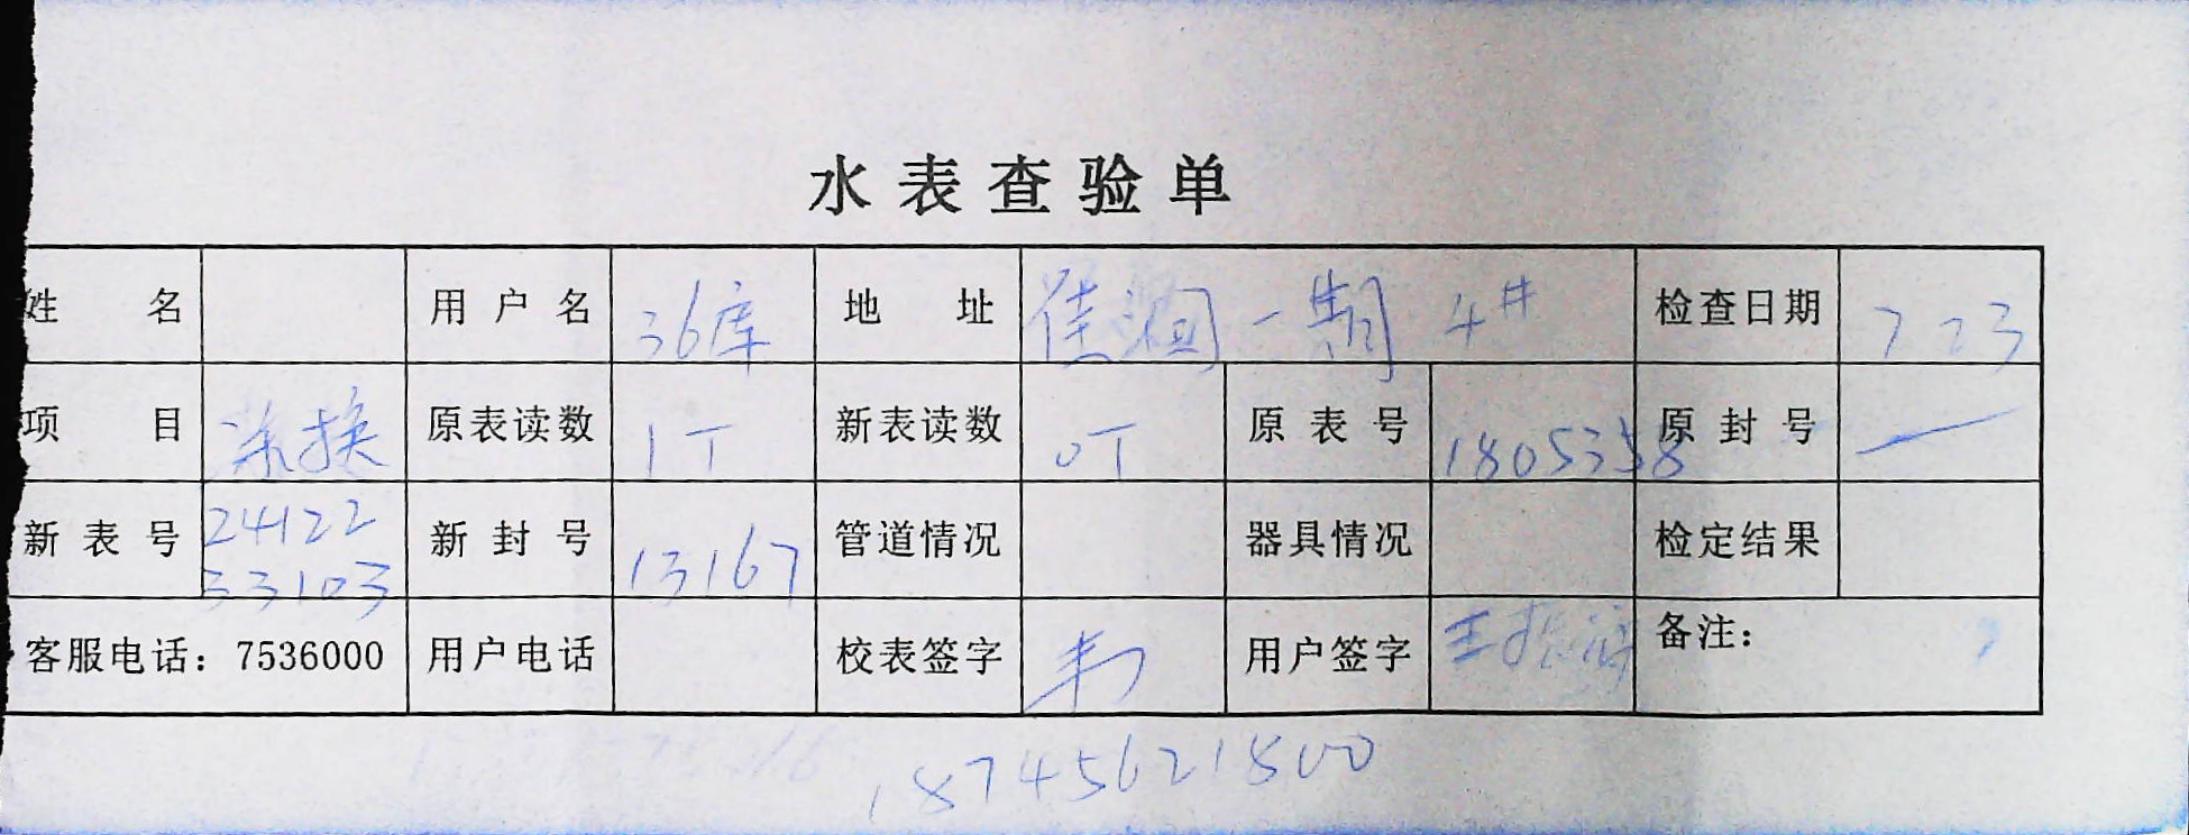 水表查验单
姓名 用户名 36库 地址 佳润一期 4# 检查日期 7 23
项目 换 原表读数 1T 新表读数 0T 原表号 1805358 原封号 —
新表号 24122 33103 新封号 13167 管道情况 器具情况 检定结果
客服电话：7536000 用户电话 校表签字 用户签字 王 备注：
18745621800